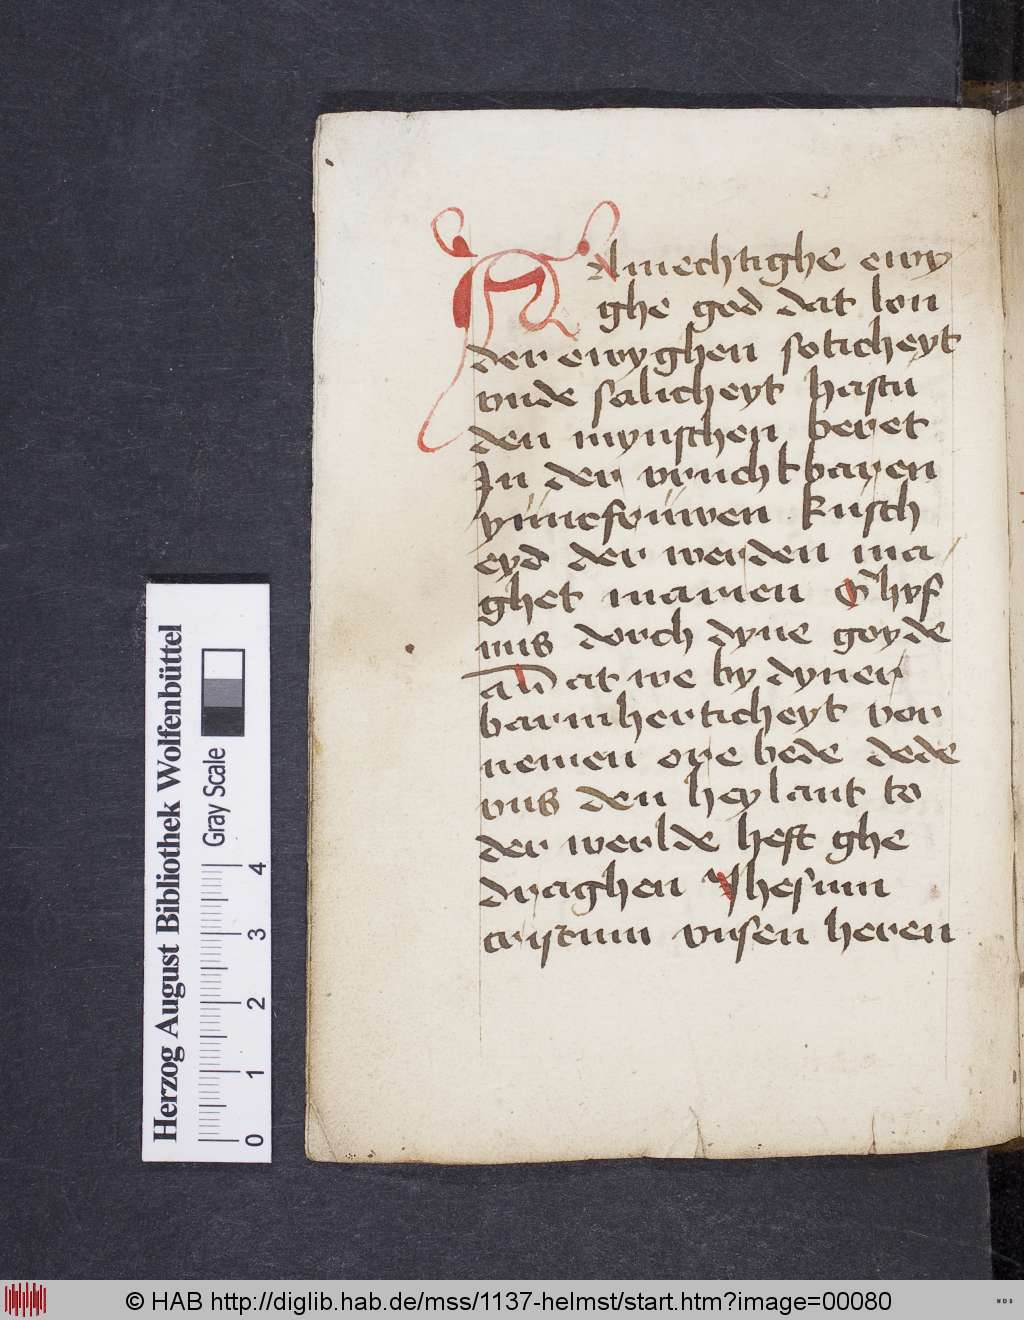 Almechtighe ewy
ghe god dat lon
der ewyghen soticheyt
vnde salicheyt hastu
den mynschen beret
In der vruchtbaren
yuncfrůwen kusch
eyd der werden ma
ghet marien Ghyf
vns dorch dyne goyde
dat we by dyner
barmherticheyt vor
nemen ore bede dede
vns den heylant to
der werlde heft ghe
draghen Ihesum
cristum vnsen heren
Herzog August Bibliothek Wolfenbüttel
Gray Scale
0 1 2 3 4
© HAB http://diglib.hab.de/mss/1137-helmst/start.htm?image=00080